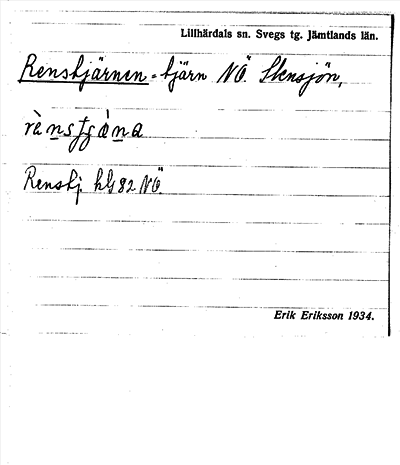 Lillhärdals sn. Svegs tg. Jämtlands län.
Renstjärnen = tjärn NÖ. Stensjön,
Renstj. hG 82 NÖ
Erik Eriksson 1934.